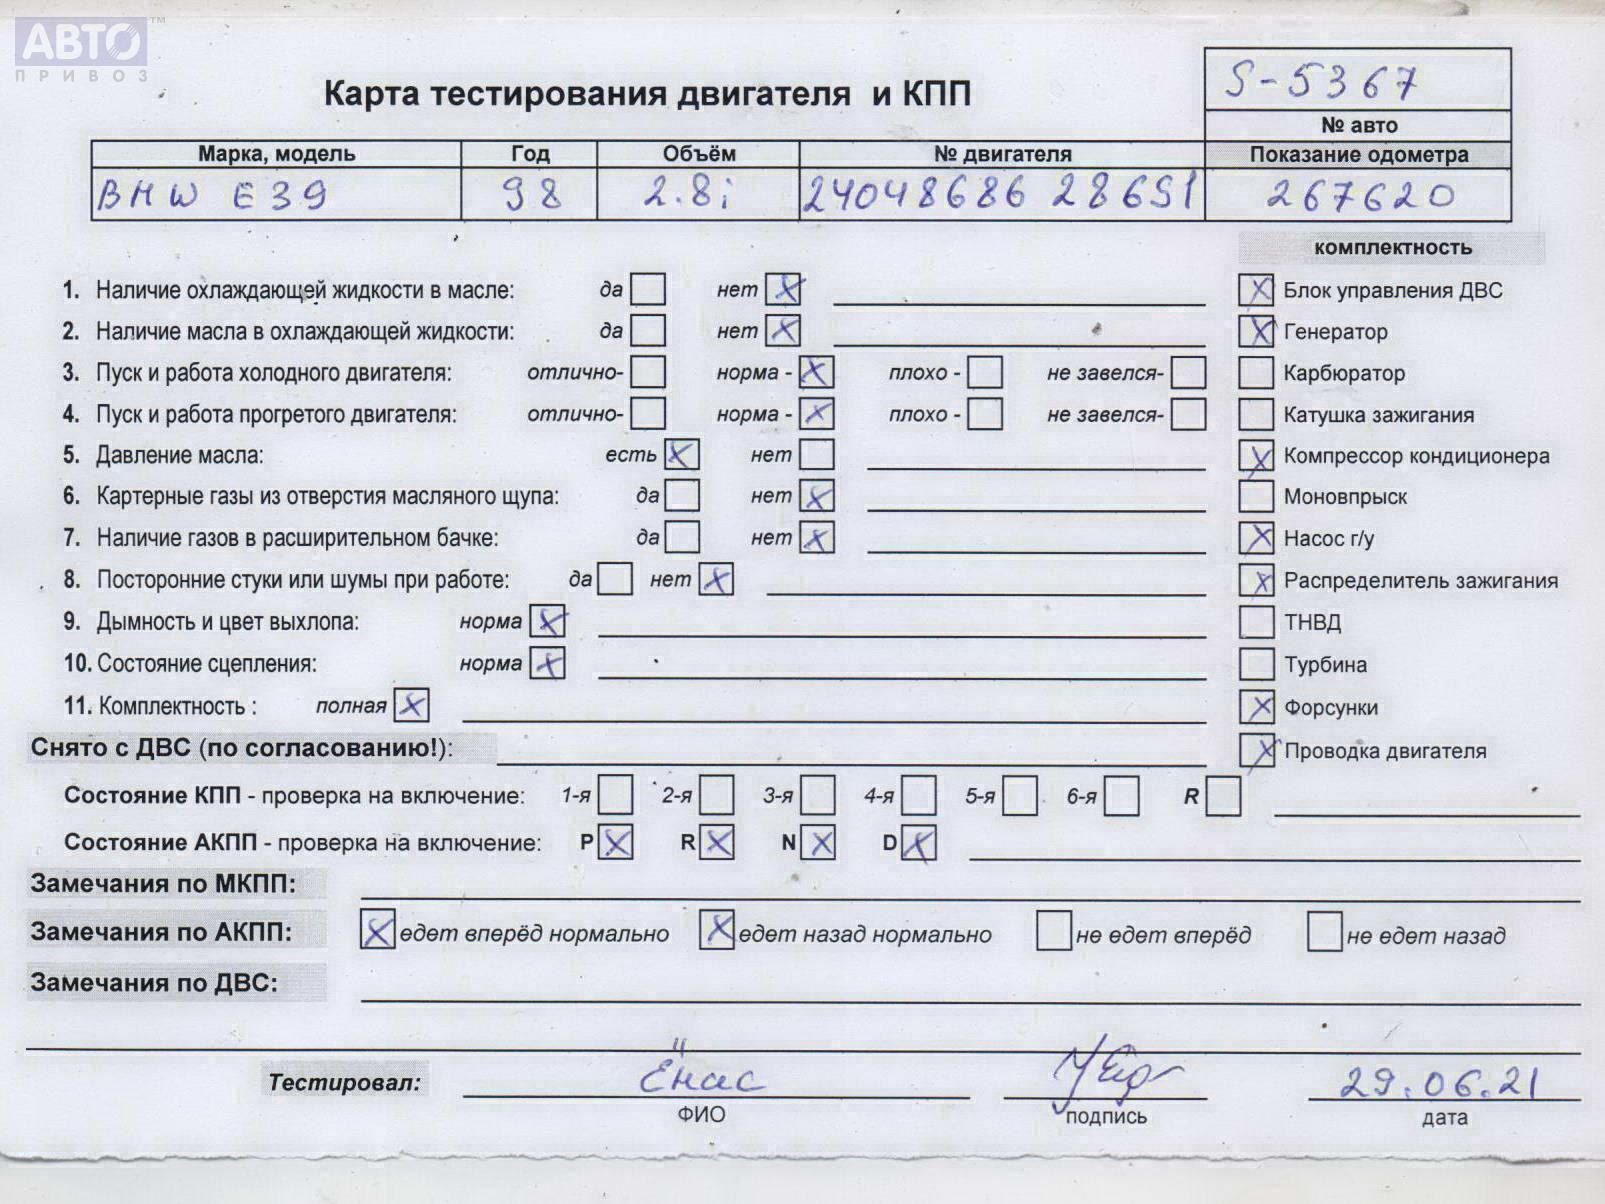 АВТО™
ПРИВОЗ
S-5367
Карта тестирования двигателя и КПП
№ авто
Марка, модель Год Объём № двигателя Показание одометра
BMW E39 98 2.8i 24048686 286S1 267620
комплектность
1. Наличие охлаждающей жидкости в масле: да нет X X Блок управления ДВС
2. Наличие масла в охлаждающей жидкости: да нет X X Генератор
3. Пуск и работа холодного двигателя: отлично- норма - X плохо - не завелся- Карбюратор
4. Пуск и работа прогретого двигателя: отлично- норма - X плохо - не завелся- Катушка зажигания
5. Давление масла: есть X нет X Компрессор кондиционера
6. Картерные газы из отверстия масляного щупа: да нет X Моновпрыск
7. Наличие газов в расширительном бачке: да нет X X Насос г/у
8. Посторонние стуки или шумы при работе: да нет X X Распределитель зажигания
9. Дымность и цвет выхлопа: норма X ТНВД
10. Состояние сцепления: норма X Турбина
11. Комплектность : полная X X Форсунки
Снято с ДВС (по согласованию!): X Проводка двигателя
Состояние КПП - проверка на включение: 1-я 2-я 3-я 4-я 5-я 6-я R
Состояние АКПП - проверка на включение: P X R X N X D X
Замечания по МКПП:
Замечания по АКПП: X едет вперёд нормально X едет назад нормально не едет вперёд не едет назад
Замечания по ДВС:
Тестировал: Ёнас 29.06.21
ФИО подпись дата